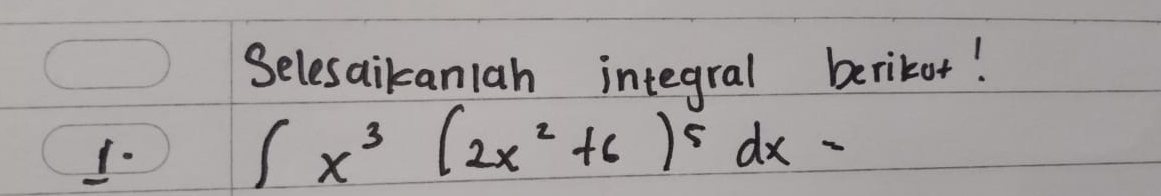 Selesaikanlah integral berikut!
1. ∫ x³ (2x² +6)⁵ dx -